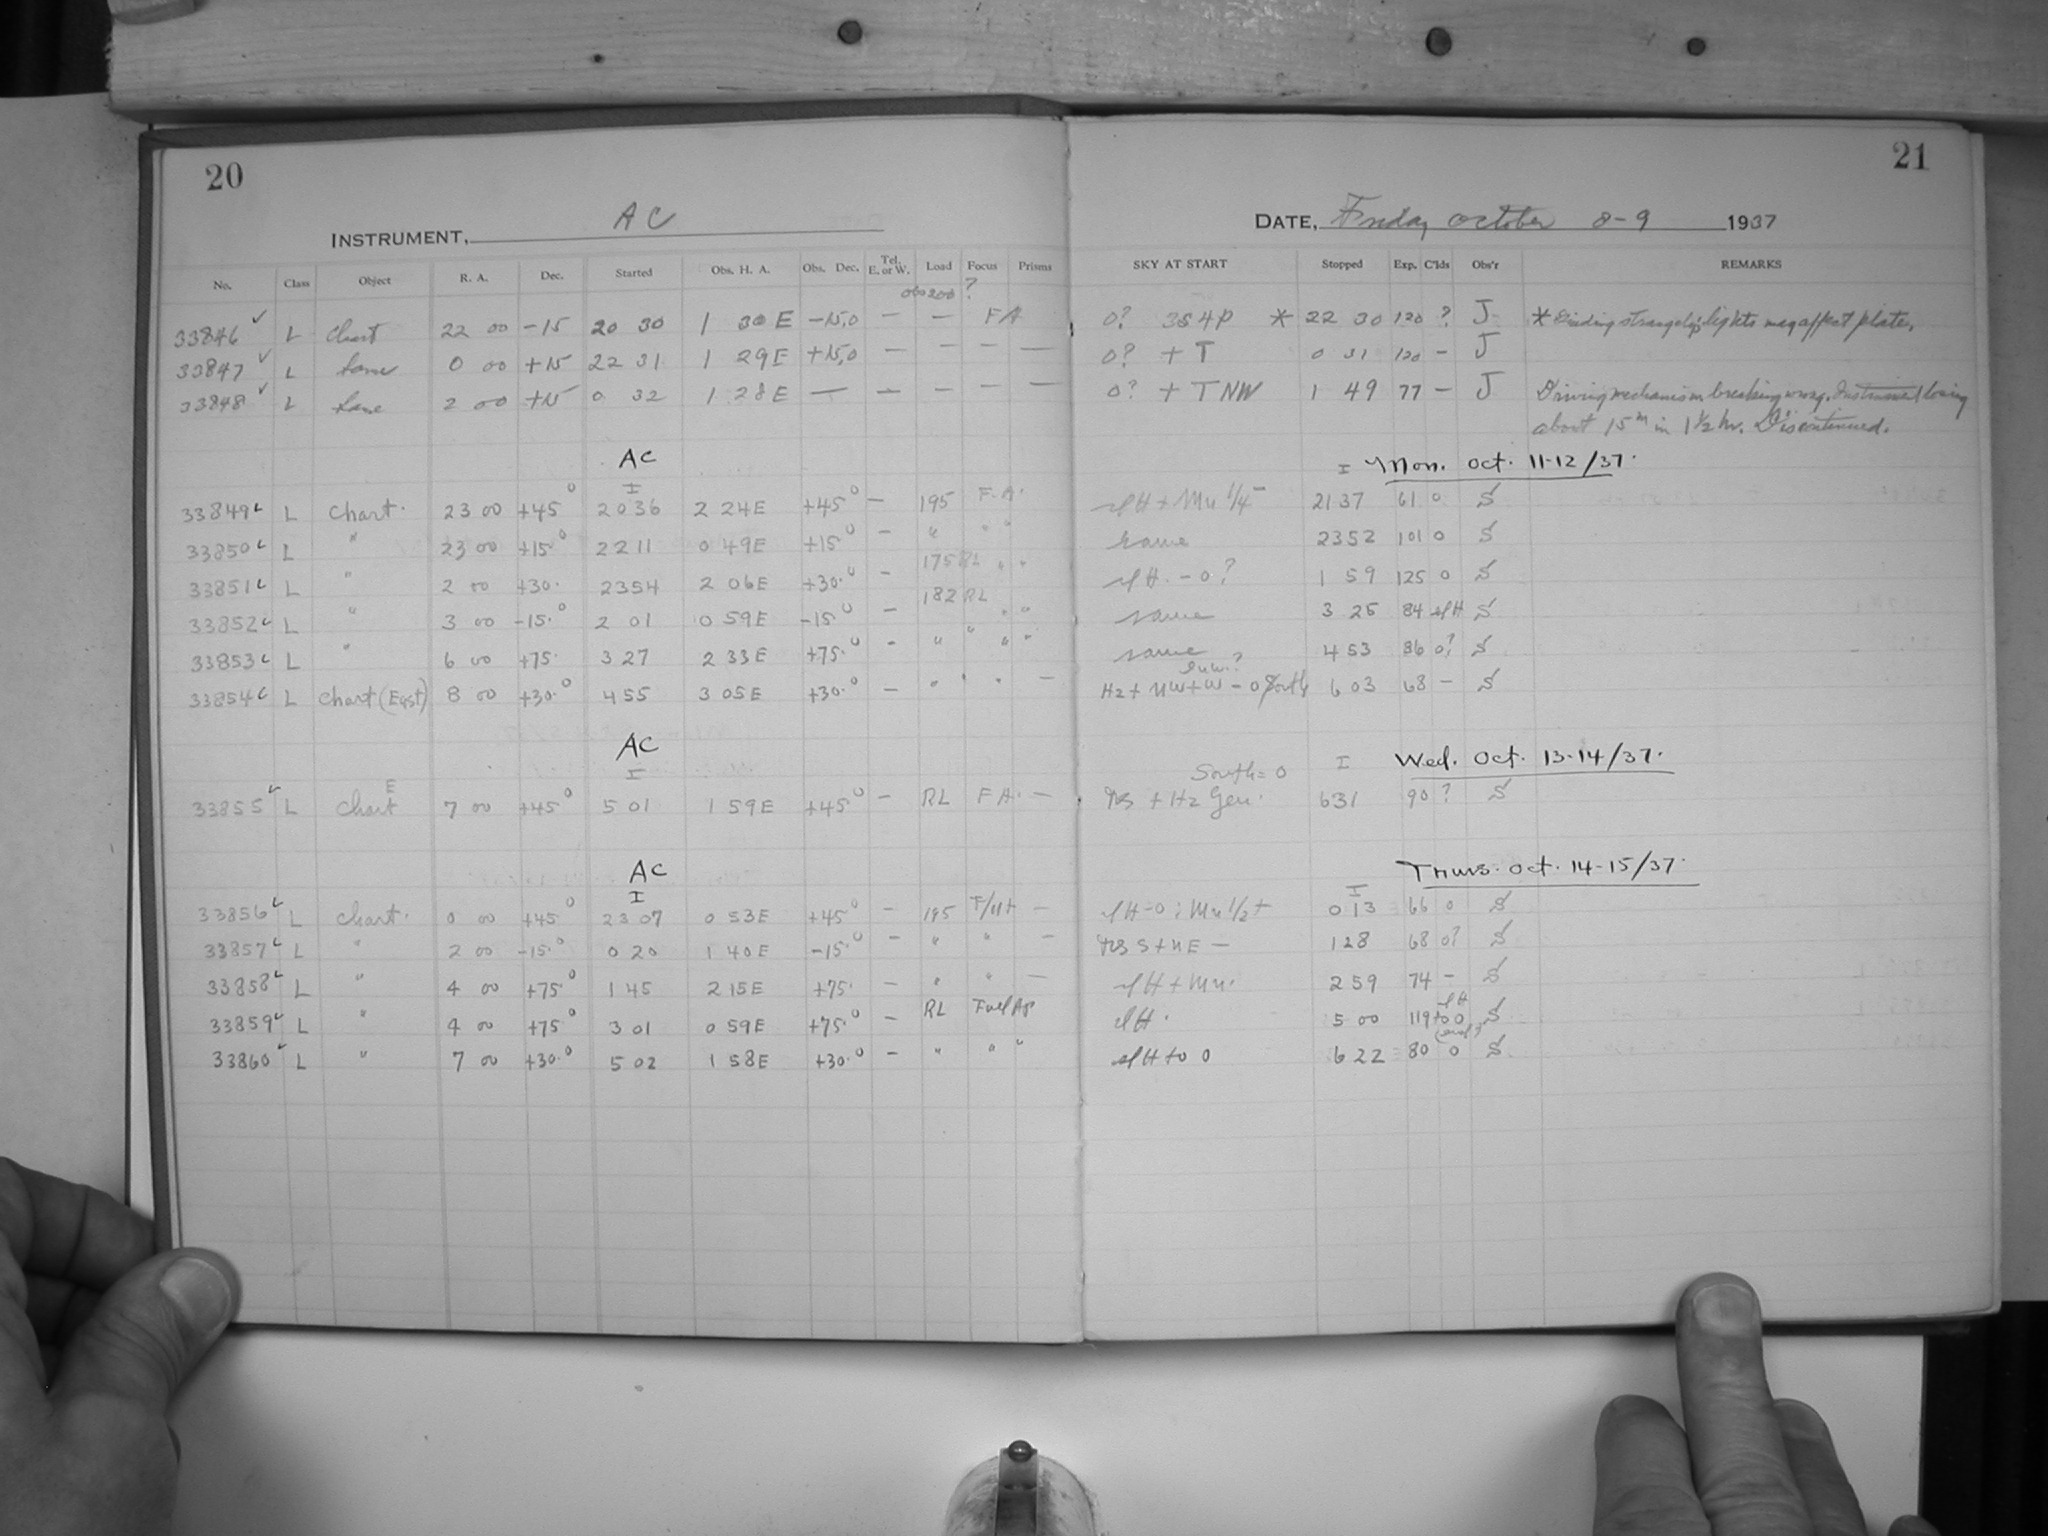 20
21
INSTRUMENT, AC
DATE, Friday October 8-9 1937
No. Class Object R. A. Dec. Started Obs. H. A. Obs. Dec. Tel. E. or W. Load Focus Prisms SKY AT START Stopped Exp. C'lds Obs'r REMARKS
33846 ✓ L Chart 22 00 -15 20 30 1 30 E -15,0 — — ? FA 0? 3S4P * 22 30 120 ? J * strangely; lights may affect plates.
33847 ✓ L Same 0 00 +15 22 31 1 29E +15,0 — — — — 0? + T 0 31 120 - J
33848 ✓ L Same 2 00 +15 0 32 1 28E — — — — — 0? + T NW 1 49 77 - J Driving mechanism breaking wrong. Instrument losing
about 15m in 1½ hr. Discontinued.
AC I Mon. Oct. 11-12/37.
I
33849 L Chart. 23 00 +45° 20 36 2 24E +45° — 195 F.A. slH + Mn 1/4 - 21 37 61 0 S
33850 L " 23 00 +15° 22 11 0 49E +15° - " " " same 23 52 101 0 S
33851 L " 2 00 +30. 23 54 2 06E +30.° - 175 RL " " slH. - 0? 1 59 125 0 S
33852 L " 3 00 -15.° 2 01 0 59E -15.° - 182 RL " " same 3 25 84 slH S
33853 L " 6 00 +75. 3 27 2 33E +75.° - " " " " same 4 53 86 0? S
33854 L Chart (East) 8 00 +30.° 4 55 3 05E +30.° - " " " — Hz + NW + W - 0 South 6 03 68 - S
AC I Wed. Oct. 13-14/37.
I South = 0
33855 ✓ L Chart E 7 00 +45° 5 01 1 59E +45° - RL F A. — + Hz Gen. 6 31 90 ? S
AC Thurs. Oct. 14-15/37.
I I
33856 L Chart. 0 00 +45° 23 07 0 53E +45° - 195 — slH-0; Mn 1/2 + 0 13 66 0 S
33857 L " 2 00 -15.° 0 20 1 40E -15.° - " " — S + NE — 1 28 68 0? S
33858 L " 4 00 +75.° 1 45 2 15E +75. - " " — slH + Mn. 2 59 74 - S
33859 L " 4 00 +75° 3 01 0 59E +75.° - RL slH. 5 00 119 slH to 0 S
33860 ✓ L " 7 00 +30.° 5 02 1 58E +30.° - " " " slH to 0 6 22 80 0 S